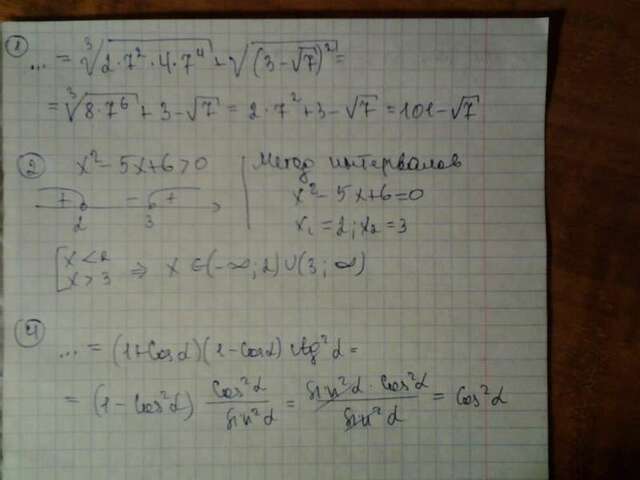 ① ... = ∛(2·7²·4·7⁴) + √((3-√7)²) =
= ∛(8·7⁶) + 3-√7 = 2·7²+3-√7 = 101-√7
② x²-5x+6>0
+ - +
2 3
[x<2
x>3 ⇒ x∈(-∞;2)∪(3;∞)
Метод интервалов
x²-5x+6=0
x₁=2; x₂=3
④ ... = (1+cosα)(1-cosα) ctg²α =
= (1-cos²α) cos²α/sin²α = sin²α·cos²α/sin²α = cos²α